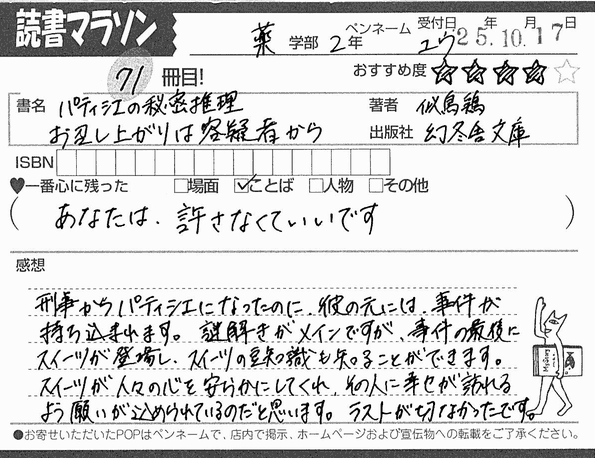 読書マラソン
薬 学部 2年 ペンネーム ユウ 受付日 25年10月17日
71 冊目! おすすめ度 ★★★★☆
書名 パティシエの秘密推理 著者 似鳥鶏
お召し上がりは容疑者から 出版社 幻冬舎文庫
ISBN
♥一番心に残った □場面 ☑ことば □人物 □その他
(あなたは、許さなくていいです)
感想
刑事からパティシエになったのに、彼の元には、事件が
持ち込まれます。謎解きがメインですが、事件の最後に
スイーツが登場し、スイーツの豆知識も知ることができます。
スイーツが人々の心を安らかにしてくれ、その人に幸せが訪れる
よう願いが込められているのだと思います。ラストが切なかったです。
●お寄せいただいたPOPはペンネームで、店内で掲示、ホームページおよび宣伝物への転載をご了承ください。